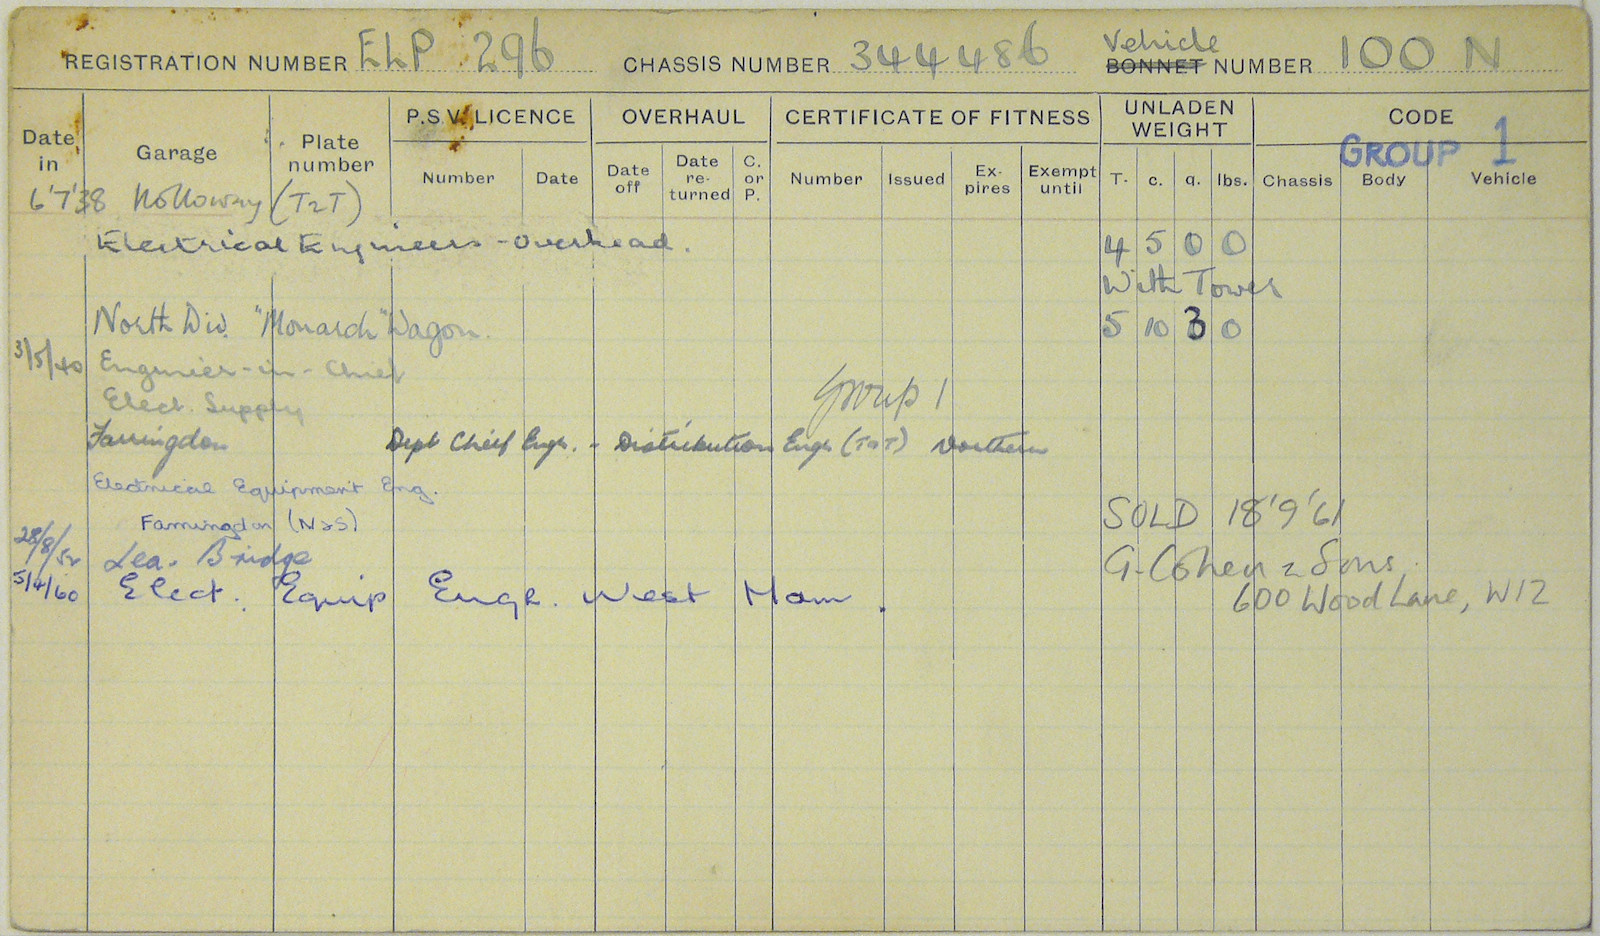 REGISTRATION NUMBER ELP 296 CHASSIS NUMBER 344486 Vehicle BONNET NUMBER 100 N
Date in Garage Plate number P.S.V. LICENCE OVERHAUL CERTIFICATE OF FITNESS UNLADEN WEIGHT CODE
GROUP 1
Number Date Date off Date re-turned C. or P. Number Issued Ex-pires Exempt until T. c. q. lbs. Chassis Body Vehicle
6'7'38 Holloway (T2T)
Electrical Engineers - overhead. 4 5 0 0
With Tower
North Div. "Monarch" Wagon. 5 10 3 0
3/5/40 Engineer-in-Chief
Elect. Supply Group 1
Farringdon Dept Chief Engr. - Distribution Engr (T2T) Northern
Electrical Equipment Eng.
Farringdon (N2S) SOLD 18'9'61
28/8/52 Lea Bridge G. Cohen & Sons.
5/4/60 Elect. Equip Engr. West Ham. 600 Wood Lane, W12